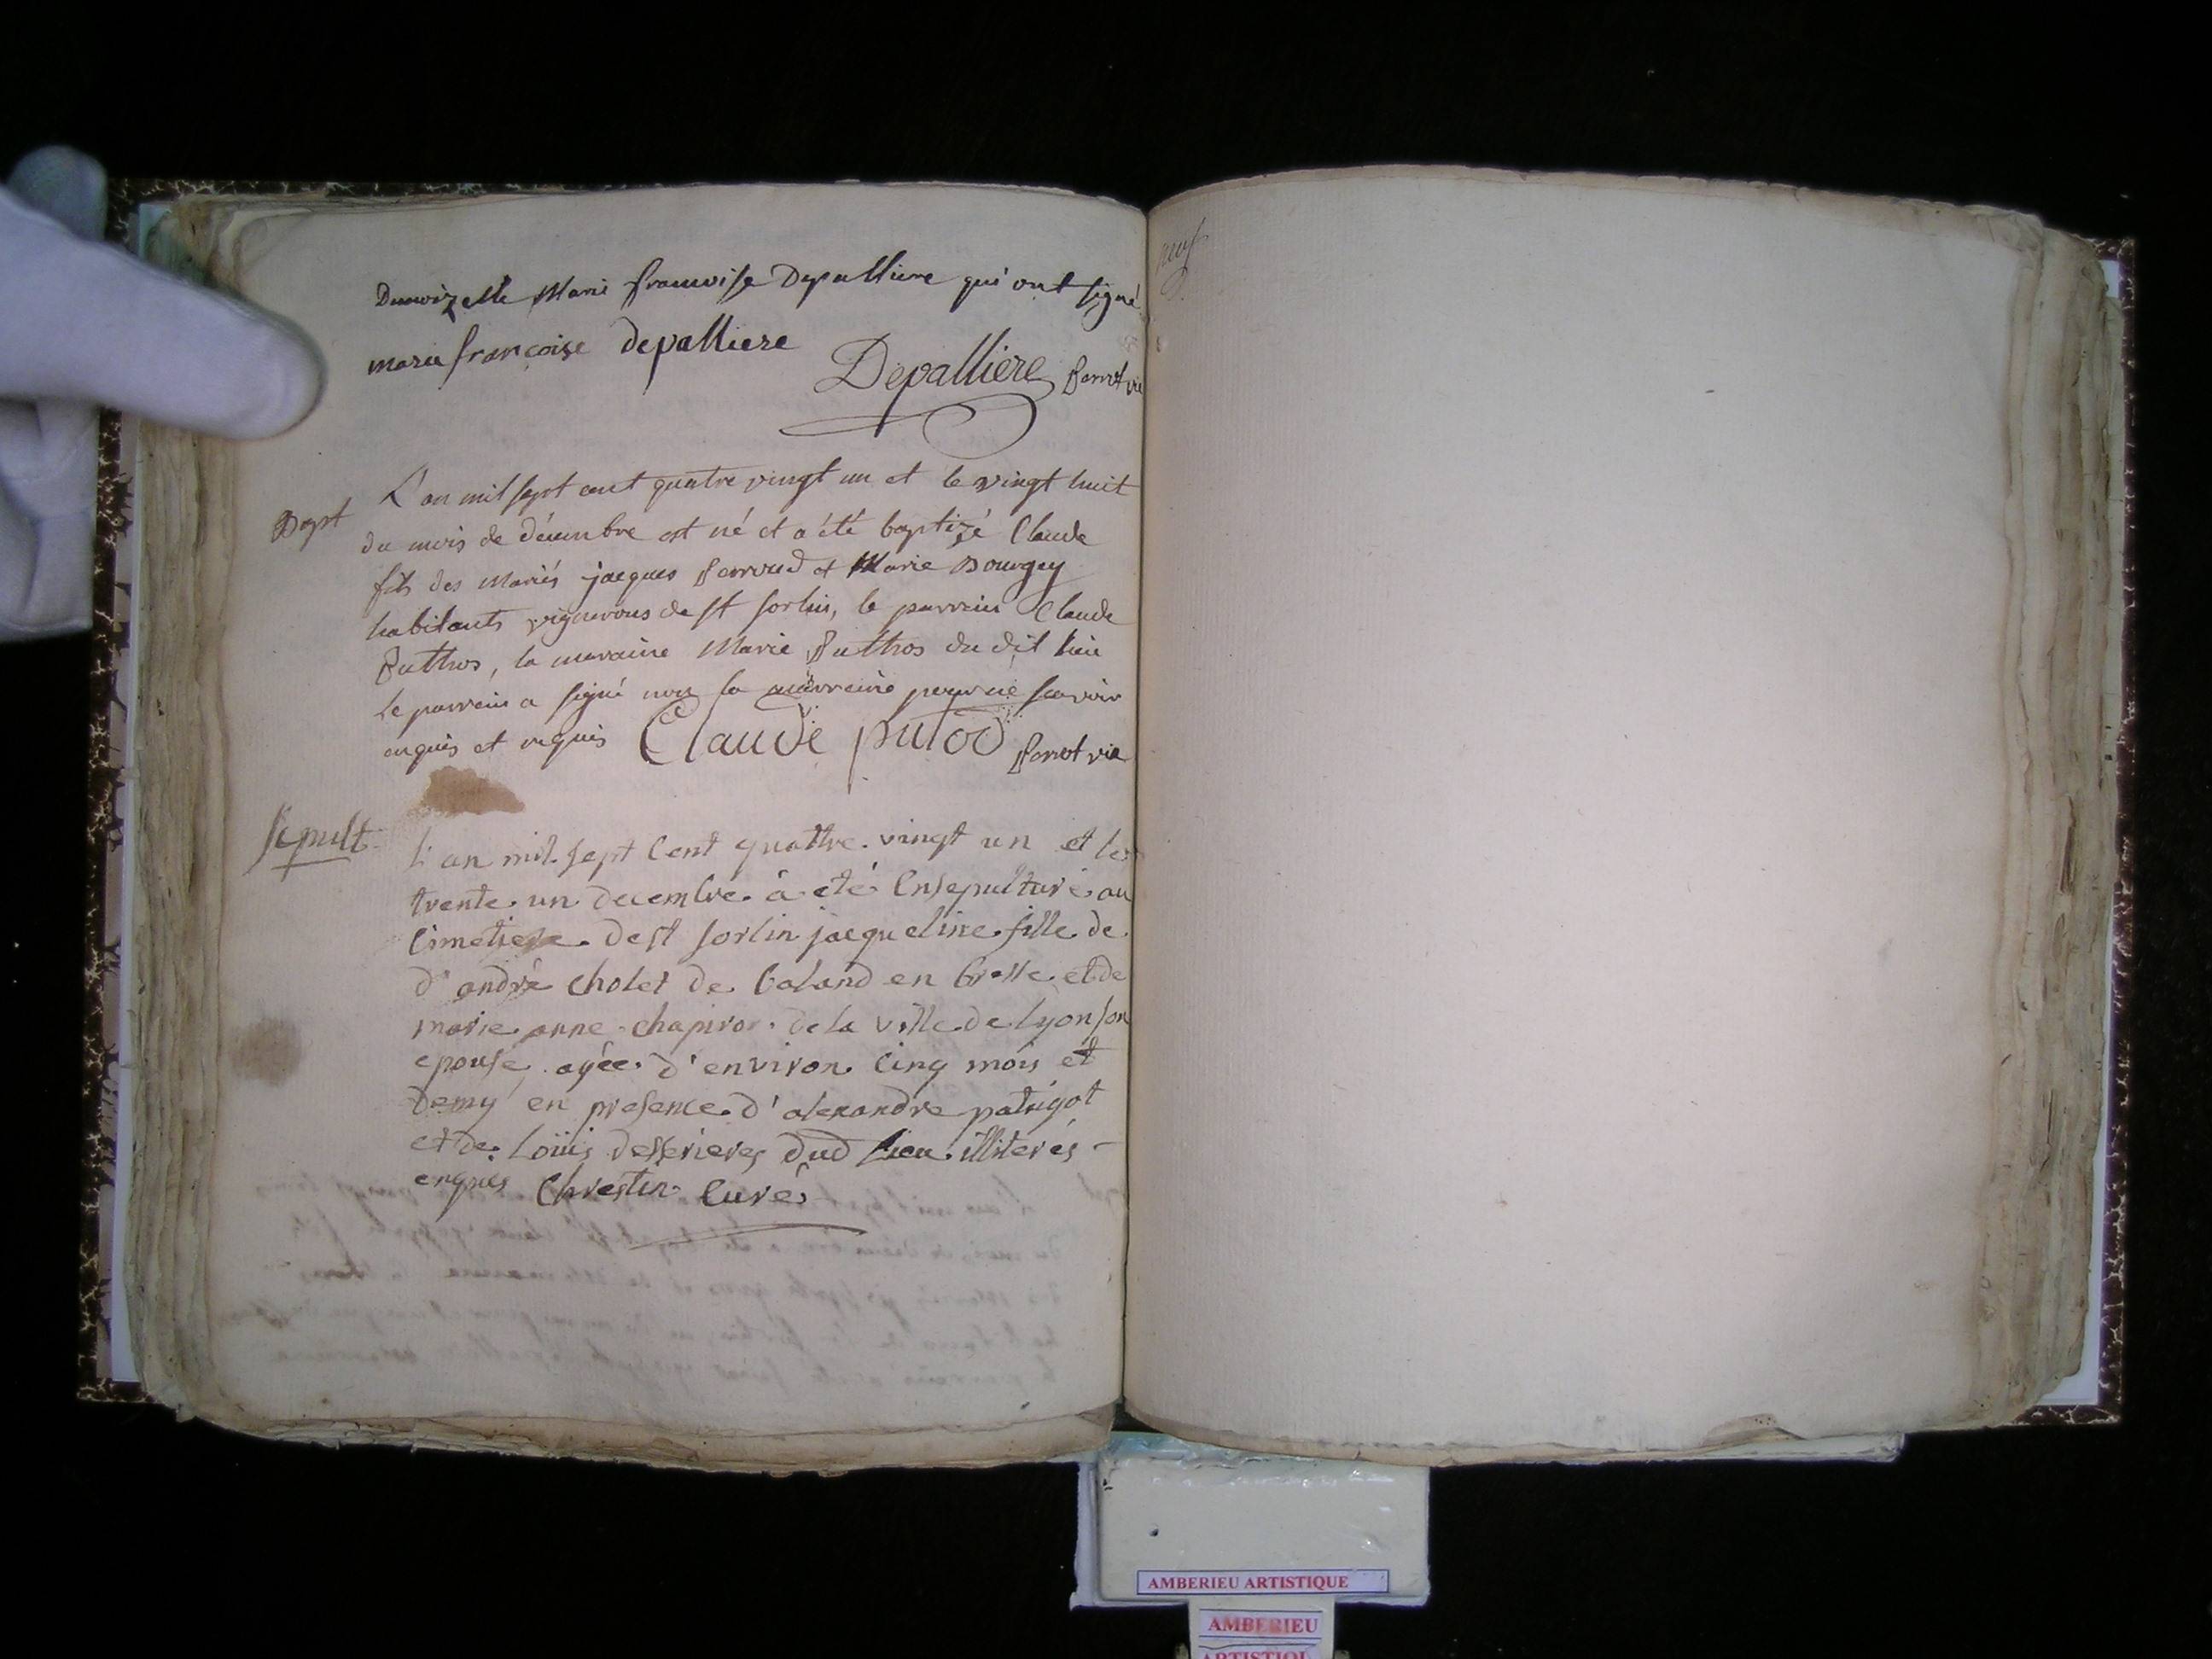 Demoizelle Marie francoise Depalliere qui ont signé
marie françoise depalliere
Depalliere
Bapt
L'an mil sept cent quatre vingt un et le vingt huit
du mois de décembre est né et a été baptizé Claude
fils des mariés jacques perroud et Marie Bourgey
habitants vignerons de st sorlin, le parrein Claude
Puthos, la maraine Marie Puthos du dit lieu
le parrein a signé non la marreine pour ne scavoir
enquis et requis Claude putod
Sepult.
L'an mil sept Cent quattre vingt un et le
trente un decembre à eté Ensepulturé au
Cimetiere de st sorlin jacqueline fille de
d'andré Cholet de Coland en bresse et de
marie anne chapiror de la ville de Lyon son
epouse agée d'environ Cinq mois et
demy en presence d'alexandre patrigot
et de Loüis desserieres dud Lieu illiterés
enquis Chrestin Curé
AMBERIEU ARTISTIQUE
AMBERIEU
ARTISTIQUE